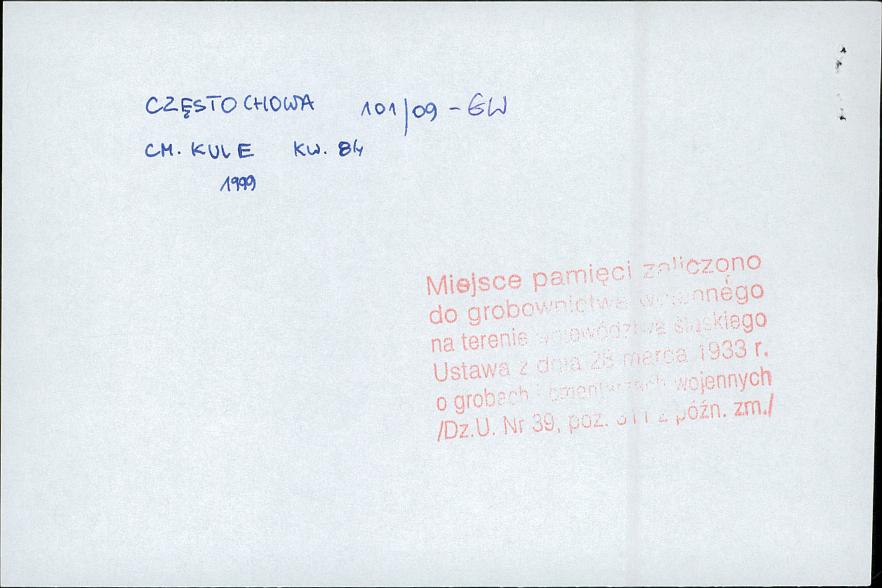 CZĘSTOCHOWA 101/09 - GW
CM. KULE KW. 84
1999
Miejsce pamięci zaliczono
do grobownictwa wojennego
na terenie województwa śląskiego
Ustawa z dnia 28 marca 1933 r.
o grobach i cmentarzach wojennych
/Dz.U. Nr 39, poz. 311 z późn. zm./